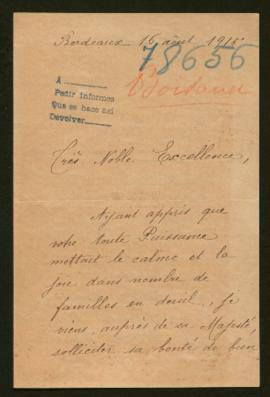 Bordeaux 16 août 1915
78656
A
Pedir informes
Que se hace así
Devolver
Très Noble Excellence,
Ayant appris que
votre toute Puissance
mettait le calme et la
joie dans nombre de
familles en deuil, je
viens, auprès de sa Majesté,
solliciter sa bonté de bien